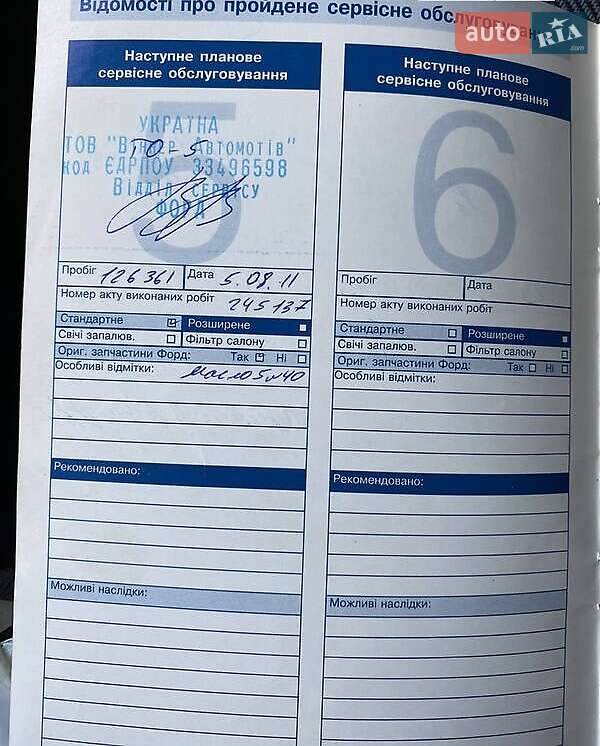 Відомості про пройдене сервісне обслуговуван
auto RIA .com
Наступне планове
сервісне обслуговування
5
УКРАЇНА
ТОВ "В Автомотів"
ТО-5
код ЄДРПОУ 33496598
Відділ сервісу
ФОРД
Пробіг 126361 Дата 5.08.11
Номер акту виконаних робіт
245137
Стандартне Розширене
Свічі запалюв. Фільтр салону
Ориг. запчастини Форд: Так Ні
Особливі відмітки: масло 5w40
Рекомендовано:
Можливі наслідки:
Наступне планове
сервісне обслуговування
6
Пробіг Дата
Номер акту виконаних робіт
Стандартне Розширене
Свічі запалюв. Фільтр салону
Ориг. запчастини Форд: Так Ні
Особливі відмітки:
Рекомендовано:
Можливі наслідки: